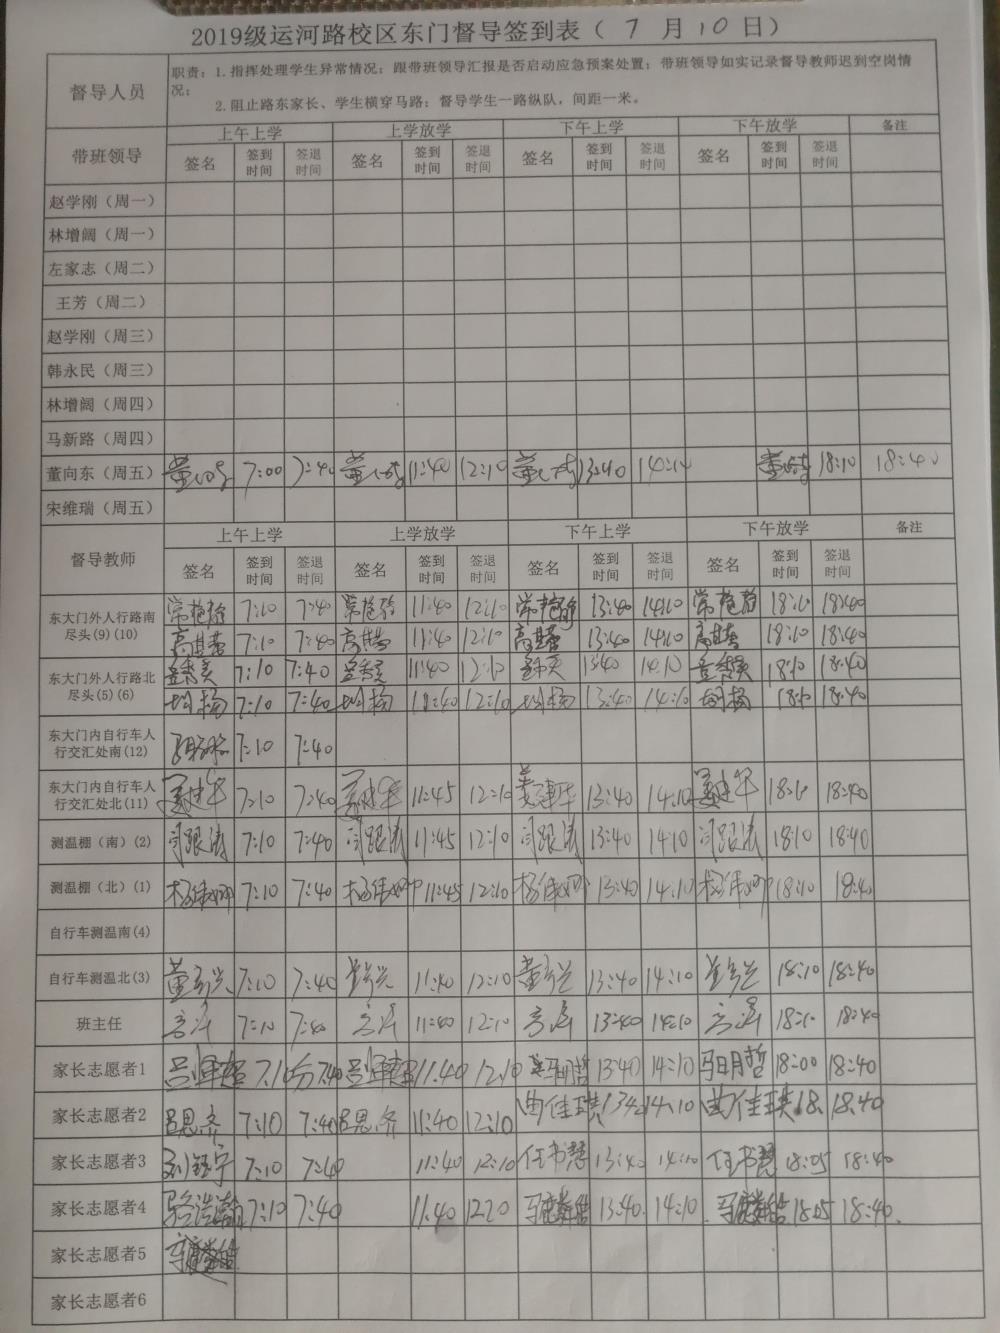 2019级运河路校区东门督导签到表（ 7 月 10 日）
督导人员
职责：1.指挥处理学生异常情况；跟带班领导汇报是否启动应急预案处置；带班领导如实记录督导教师迟到空岗情
况；
2.阻止路东家长、学生横穿马路；督导学生一路纵队，间距一米。
带班领导 上午上学 上学放学 下午上学 下午放学 备注
签名 签到时间 签退时间 签名 签到时间 签退时间 签名 签到时间 签退时间 签名 签到时间 签退时间
赵学刚（周一）
林增阔（周一）
左家志（周二）
王芳（周二）
赵学刚（周三）
韩永民（周三）
林增阔（周四）
马新路（周四）
董向东（周五） 7:00 7:40 11:40 12:10 13:40 14:10 18:10 18:40
宋维瑞（周五）
督导教师 上午上学 上学放学 下午上学 下午放学 备注
签名 签到时间 签退时间 签名 签到时间 签退时间 签名 签到时间 签退时间 签名 签到时间 签退时间
东大门外人行路南
尽头(9)(10)
7:10 7:40 11:40 12:10 13:40 14:10 18:10 18:40
7:10 7:40 11:40 12:10 13:40 14:10 18:10 18:40
东大门外人行路北
尽头(5)(6)
7:10 7:40 11:40 12:10 13:40 14:10 18:10 18:40
胡杨 7:10 7:40 胡杨 11:40 12:10 胡杨 13:40 14:10 胡杨 18:10 18:40
东大门内自行车人
行交汇处南(12)
7:10 7:40
东大门内自行车人
行交汇处北(11)
姜建华 7:10 7:40 姜建华 11:45 12:10 姜建华 13:40 14:10 姜建华 18:10 18:40
测温棚（南）(2) 闫跟涛 7:10 7:40 闫跟涛 11:45 12:10 闫跟涛 13:40 14:10 闫跟涛 18:10 18:40
测温棚（北）(1) 杨伟娜 7:10 7:40 杨伟娜 11:45 12:10 杨伟娜 13:40 14:10 杨伟娜 18:10 18:40
自行车测温南(4)
自行车测温北(3) 7:10 7:40 11:40 12:10 13:40 14:10 18:10 18:40
班主任 7:10 7:40 11:40 12:10 13:40 14:10 18:10 18:40
家长志愿者1 7.10分 7.40 11.40 12.10 马明哲 13:40 14:10 马明哲 18:00 18:40
家长志愿者2 吕思齐 7:10 7:40 吕思齐 11:40 12:10 曲佳琪 134 14:10 曲佳琪 18. 18:40
家长志愿者3 刘钰宁 7:10 7:40 11:40 12:10 任书慧 13:40 14:10 任书慧 18:05 18:40
家长志愿者4 骆浩瀚 7:10 7:40 11:40 12:10 13:40. 14:10. 18:05 18:40.
家长志愿者5
家长志愿者6